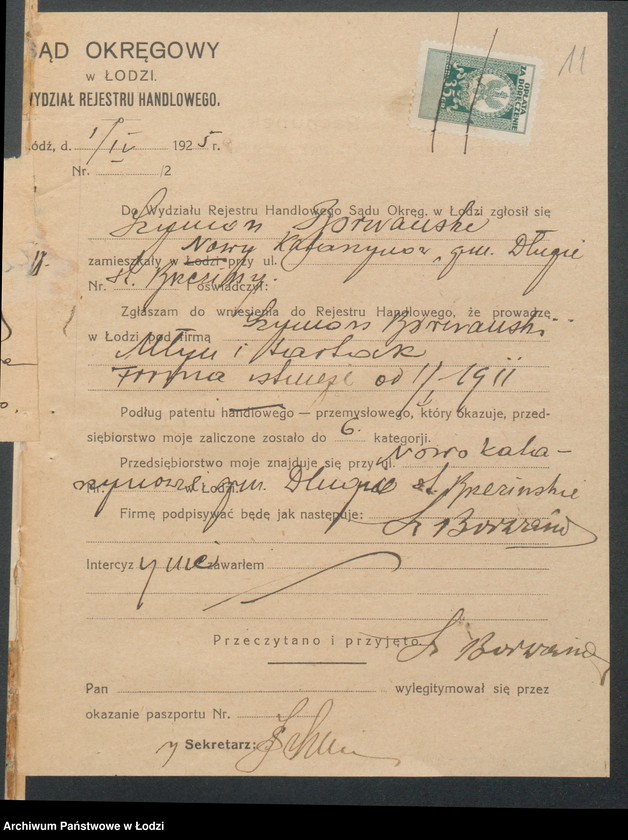 11
SĄD OKRĘGOWY
w ŁODZI.
WYDZIAŁ REJESTRU HANDLOWEGO.
OPŁATA
ZA DORĘCZENIE
35
ódź, d. 1/IV 1925 r.
Nr. /2
Do Wydziału Rejestru Handlowego Sądu Okręg. w Łodzi zgłosił się
Szymon Borwański
Nowy Katarzynów, gm. Długie
zamieszkały w Łodzi przy ul.
Nr. st. Brzeziny. i oświadczył:
Zgłaszam do wniesienia do Rejestru Handlowego, że prowadzę
w Łodzi pod firmą Szymon Borwański
Młyn i tartak
Firma istnieje od 1/I 1911
Podług patentu handlowego — przemysłowego, który okazuje, przed-
siębiorstwo moje zaliczone zostało do 6. kategorji.
Przedsiębiorstwo moje znajduje się przy ul. Nowo Kata-
rzynowie, gm. Długie w Łodzi. Brzezińskie
Firmę podpisywać będę jak następuje: Sz Borwański
Intercyzy nie zawarłem
Przeczytano i przyjęto. Sz Borwański
Pan wylegitymował się przez
okazanie paszportu Nr.
Sekretarz:
Archiwum Państwowe w Łodzi